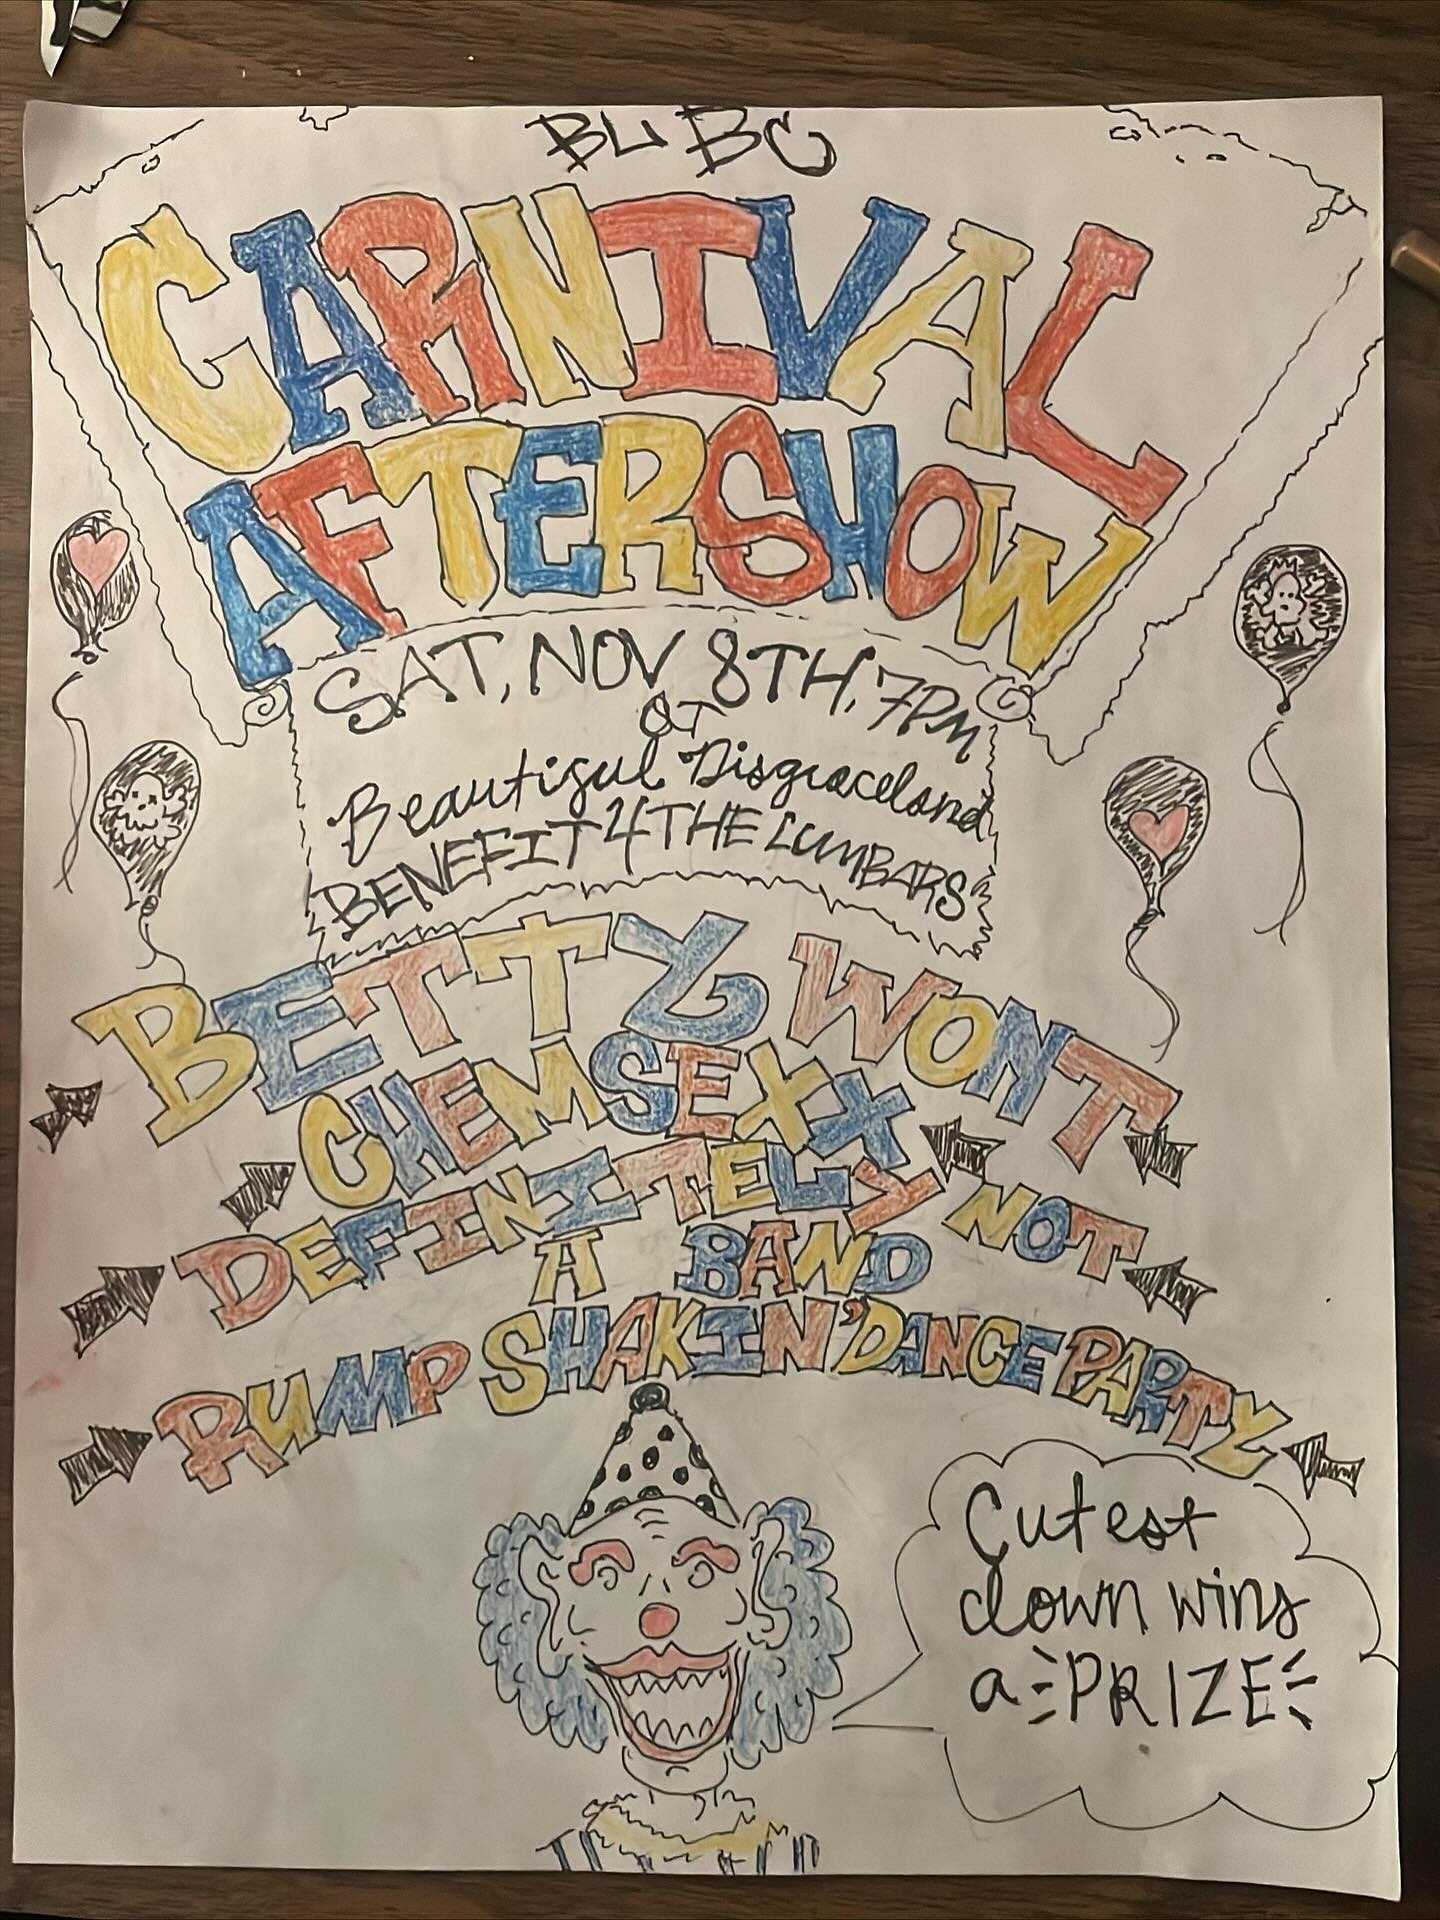 BL BC
CARNIVAL
AFTERSHOW
SAT, NOV 8TH, 7PM
AT
Beautiful Disgraceland
BENEFIT 4 THE LUMBARS
BETTY WONT
CHEMSEXX
DEFINITELY NOT
A BAND
RUMP SHAKIN' DANCE PARTY
Cutest
clown wins
a PRIZE